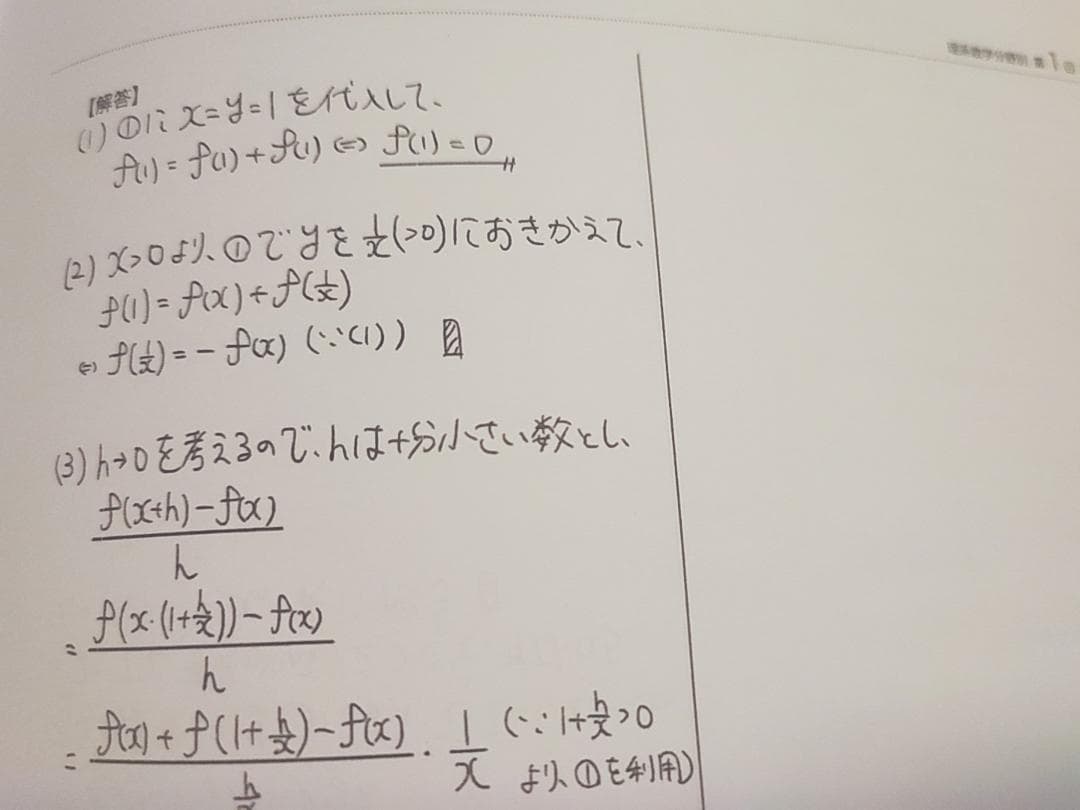 理系数学分野別 第1回
【解答】
(1) ①に x=y=1 を代入して、
f(1) = f(1) + f(1) ⇔ f(1) = 0
(2) x>0より、①で yを 1/x (>0) におきかえて、
f(1) = f(x) + f(1/x)
⇔ f(1/x) = - f(x) (∵(1))
(3) h→0を考えるので、hは十分小さい数とし、
f(x+h) - f(x)
h
= f(x・(1+h/x)) - f(x)
h
= f(x) + f(1+h/x) - f(x) ・ 1/x (∵ 1+h/x >0
より、①を利用)
h/x